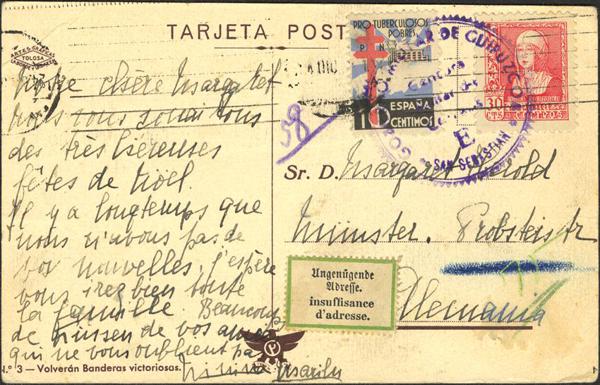 TARJETA POST
ARTES GRAFICAS
TOLOSA
PRO TUBERCULOSOS
POBRES
P N
10
ESPAÑA
CENTIMOS
30
CTS
CORREOS
MILITAR DE GUIPUZCOA
Censura
E
SAN SEBASTIAN
58
Notre chère Margaret
nous vous souhaitons
des très heureuses
fêtes de Noël.
Il y a longtemps que
nous n'avons pas de
vos nouvelles, j'espère
vous irez bien toute
la famille Beaucoup
de de vos amies
qui ne vous oublient pas
Marilu
Sr. D. Margaret
Münster. Probsteistr
Alemania
Ungenügende
Adresse.
insuffisance
d'adresse.
N.º 3 — Volverán Banderas victoriosas.